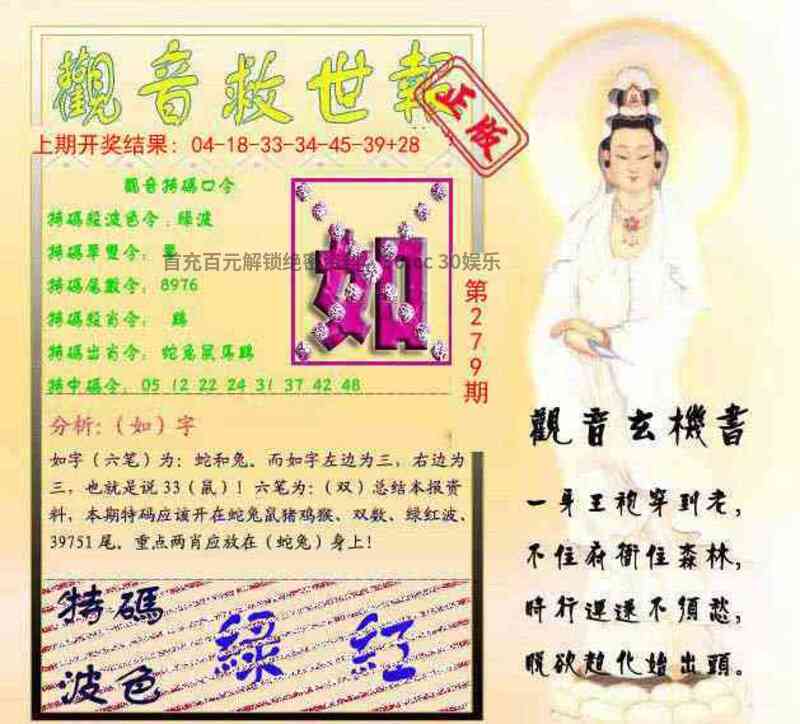 觀音救世報
正版
上期开奖结果：04-18-33-34-45-39+28
觀音特碼口令
特碼殺波色令：绿波
特碼單雙令：單
特碼尾數令：8976
特碼殺肖令：鷄
特碼出肖令：蛇兔鼠馬鷄
特中碼令：05 12 22 24 31 37 42 48
首充百元解锁绝密 .cc 30娱乐
如
第279期
分析：（如）字
如字（六笔）为：蛇和兔。而如字左边为三，右边为
三，也就是说33（鼠）！六笔为：（双）总结本报资
料，本期特码应该开在蛇兔鼠猪鸡猴、双数、绿红波、
39751尾。重点两肖应放在（蛇兔）身上！
特碼
波色
綠 紅
觀音玄機書
一身王袍穿到老，
不住府衙住森林，
時行運遂不須愁，
脫欲超化始出頭。